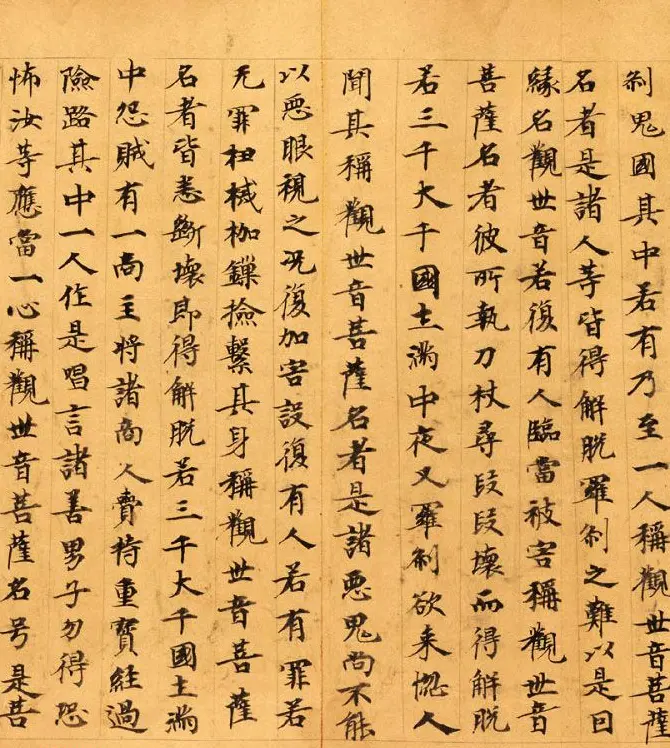 刹鬼國其中若有乃至一人稱觀世音菩薩
名者是諸人等皆得解脫羅刹之難以是因
緣名觀世音若復有人臨當被害稱觀世音
菩薩名者彼所執刀杖尋段段壞而得解脫
若三千大千國土滿中夜叉羅刹欲來惱人
聞其稱觀世音菩薩名者是諸惡鬼尚不能
以惡眼視之况復加害設復有人若有罪若
无罪杻械枷鏁撿繫其身稱觀世音菩薩
名者皆悉斷壞即得解脫若三千大千國土滿
中怨賊有一商主將諸商人賷持重寶經過
險路其中一人作是唱言諸善男子勿得恐
怖汝等應當一心稱觀世音菩薩名号是菩